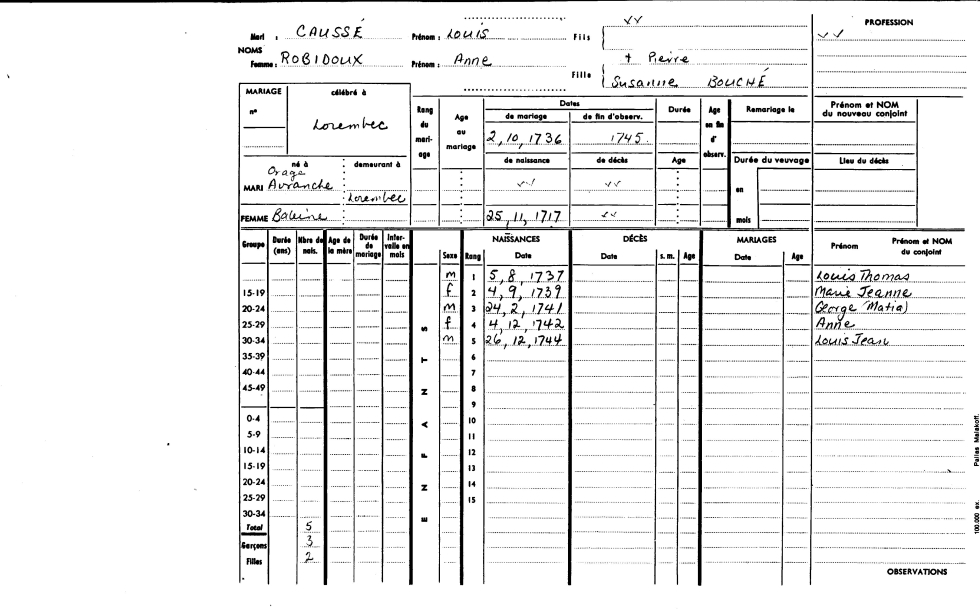 Mari : CAUSSÉ Prénom : Louis Fils √√ PROFESSION
√√
NOMS
Femme : ROBIDOUX Prénom : Anne Fille + Pierre
Susanne BOUCHÉ
MARIAGE célébré à
n° Lorembec
Rang du mariage Age au mariage Dates Durée Age en fin d' observ. Remariage le Prénom et NOM du nouveau conjoint
de mariage de fin d'observ.
2, 10, 1736 1745
de naissance de décès Age Durée du veuvage Lieu du décès
né à demeurant à
MARI Avranche Lorembec √√ √√ en
FEMME Baleine 25, 11, 1717 √√ mois
Groupe Durée (ans) Nbre de nais. Age de la mère Durée de mariage Intervalle en mois ENFANTS Sexe Rang NAISSANCES Date DÉCÈS Date s. m. Age MARIAGES Date Age Prénom Prénom et NOM du conjoint
m 1 5, 8, 1737 Louis Thomas
15-19 f 2 4, 9, 1739 Marie Jeanne
20-24 m 3 24, 2, 1741 George (Matia)
25-29 f 4 4, 12, 1742 Anne
30-34 m 5 26, 12, 1744 Louis Jean
35-39 6
40-44 7
45-49 8
9
0-4 10
5-9 11
10-14 12
15-19 13
20-24 14
25-29 15
30-34
Total 5
Garçons 3
Filles 2
OBSERVATIONS
100.000 ex. Malakoff.